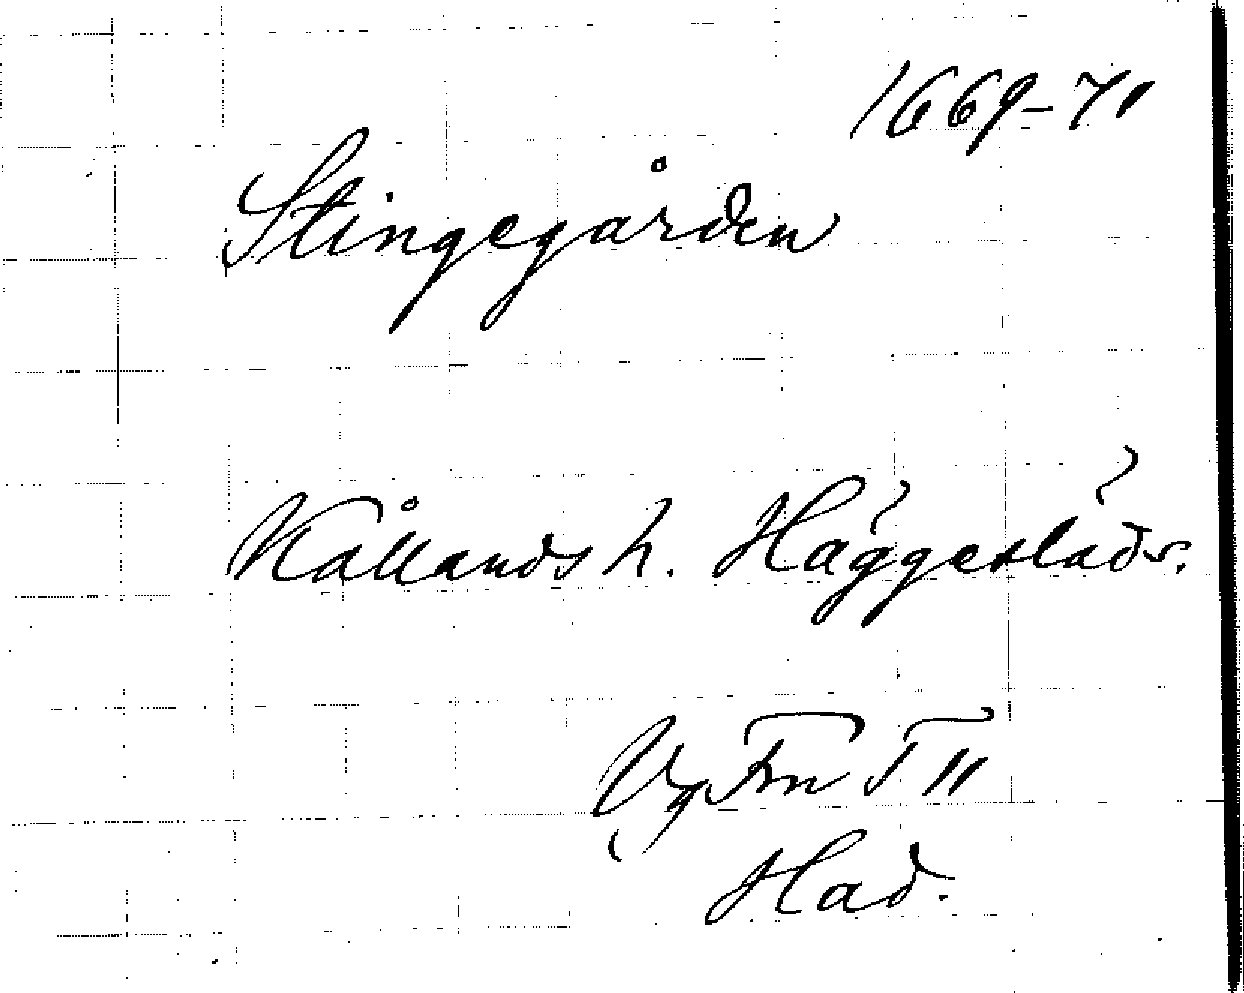 1669-71
Stingegården
Kållands h. Häggeslads.
Vg Fm T 11
Had.